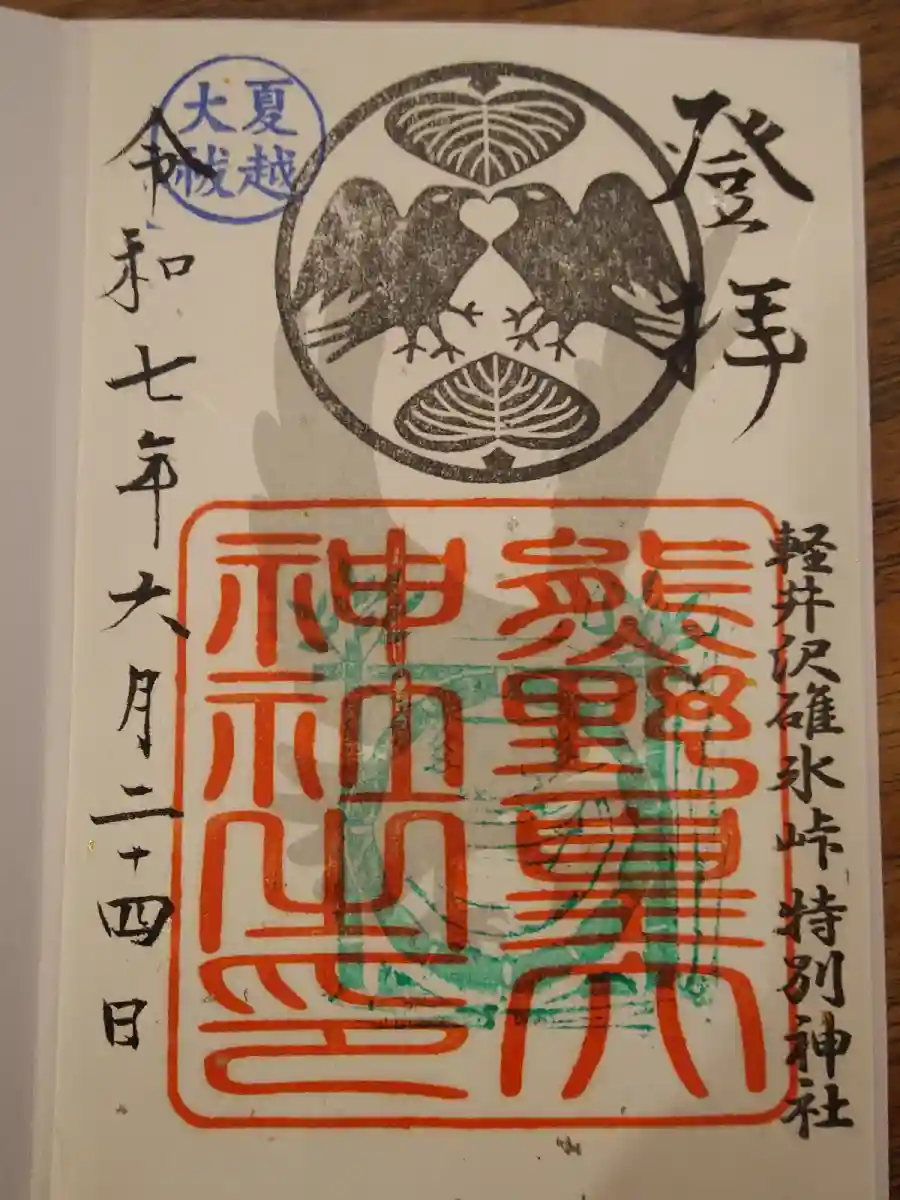 登拝
軽井沢碓氷峠特別神社
熊野皇大
神社之印
夏越
大祓
令和七年六月二十四日